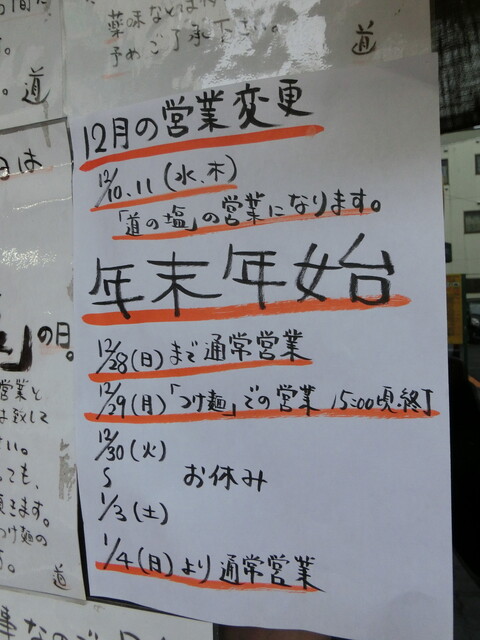 薬味などは
予めご了承下さい。
道
。道
12月の営業変更
12/10.11(水、木)
「道の塩」の営業になります。
年末年始
12/28(日)まで通常営業
12/29(月)「つけ麺」での営業 15:00頃終了
12/30(火)
S お休み
1/3(土)
1/4(日)より通常営業
は
の日。
営業と
は致して
さい。
っても、
頂きます。
つけ麺の
す。
道